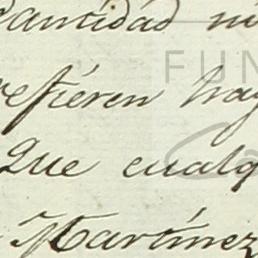 Cantidad
FUN
refieren hay
Que cualq
Martinez